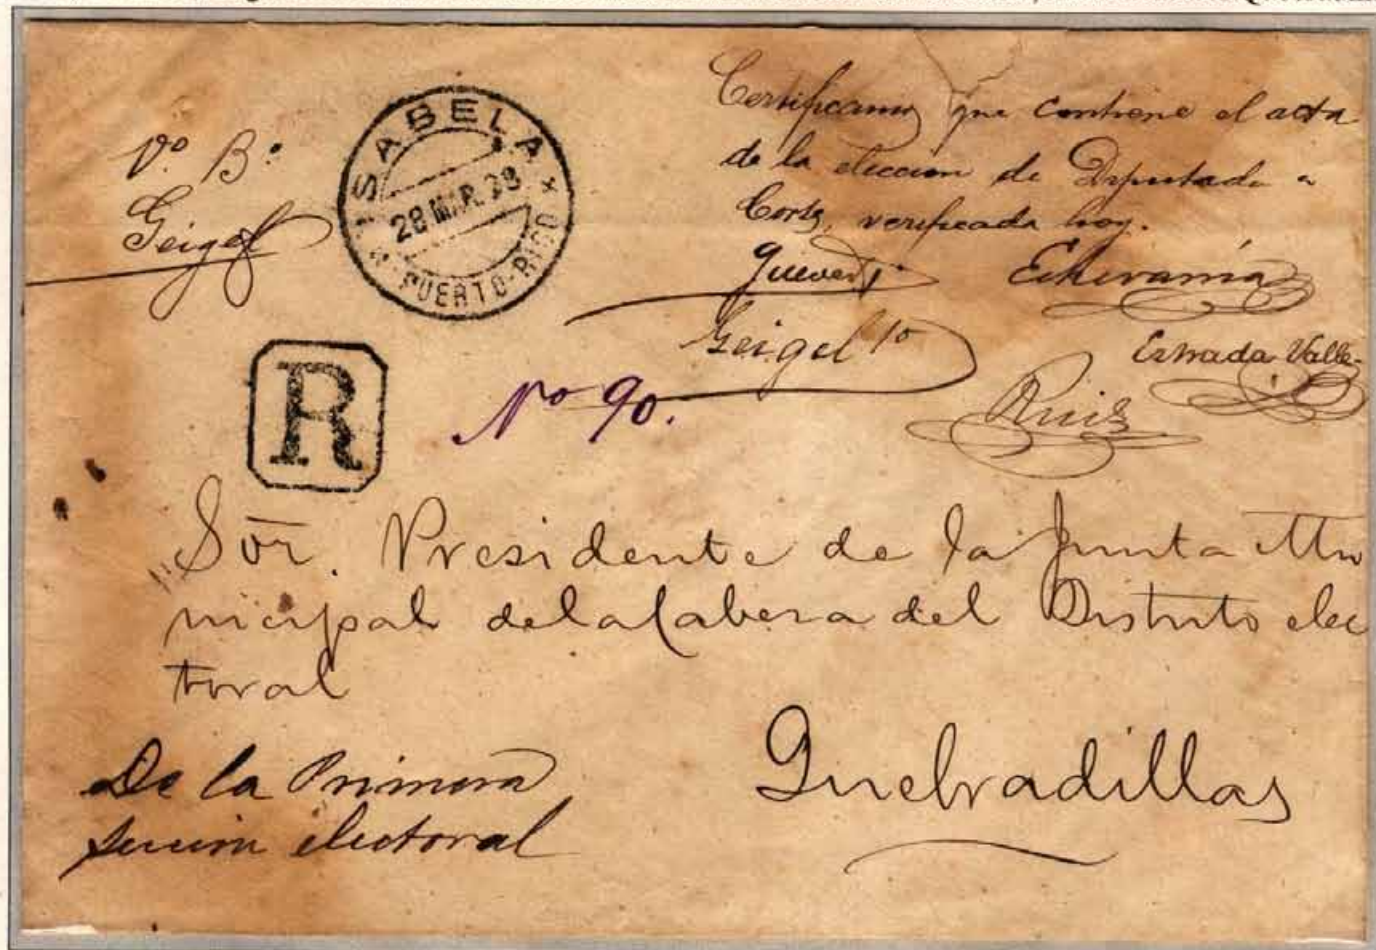 Vº Bº
Geigel
ISABELA
28 MAR. 98
PUERTO-RICO
Certificamos que contiene el acta
de la eleccion de Diputado a
Cortes, verificada hoy.
Echevarría
Geigel
Estrada Valle
Ruiz
R
Nº 90.
Sor. Presidente de la Junta Mu
nicipal de la Cabesa del Distrito elec
toral
Quebradillas
De la Primera
seccion electoral